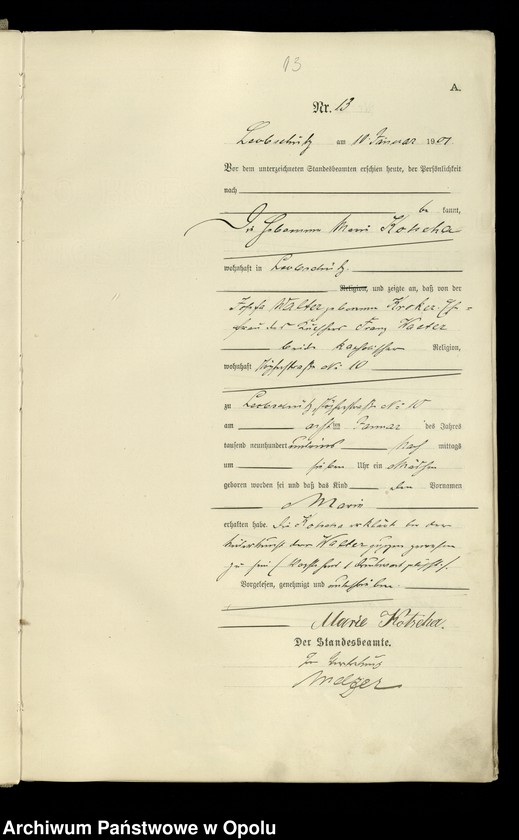 13
A.
Nr. 13
Leobschütz am 10 Januar 1901
Vor dem unterzeichneten Standesbeamten erschien heute, der Persönlichkeit
nach
be kannt,
Die Hebamme Marie Kotscha
wohnhaft in Leobschütz
Religion, und zeigte an, daß von der
Josefa Walter geborenen Kroker, Ehe=
frau des Franz Walter
beide katholischer Religion,
wohnhaft Töpferstraße No 10
zu Leobschütz, Töpferstraße No 10
am achten Januar des Jahres
tausend neunhundert undeins Nach mittags
um sieben Uhr ein Mädchen
geboren worden sei und daß das Kind den Vornamen
Marie
erhalten habe. Die Kotscha erklärt bei der
Niederkunft der Walter zugegen gewesen
zu sein
Vorgelesen, genehmigt und unterschrieben
Marie Kotscha.
Der Standesbeamte.
In Vertretung
Melzer
Archiwum Państwowe w Opolu